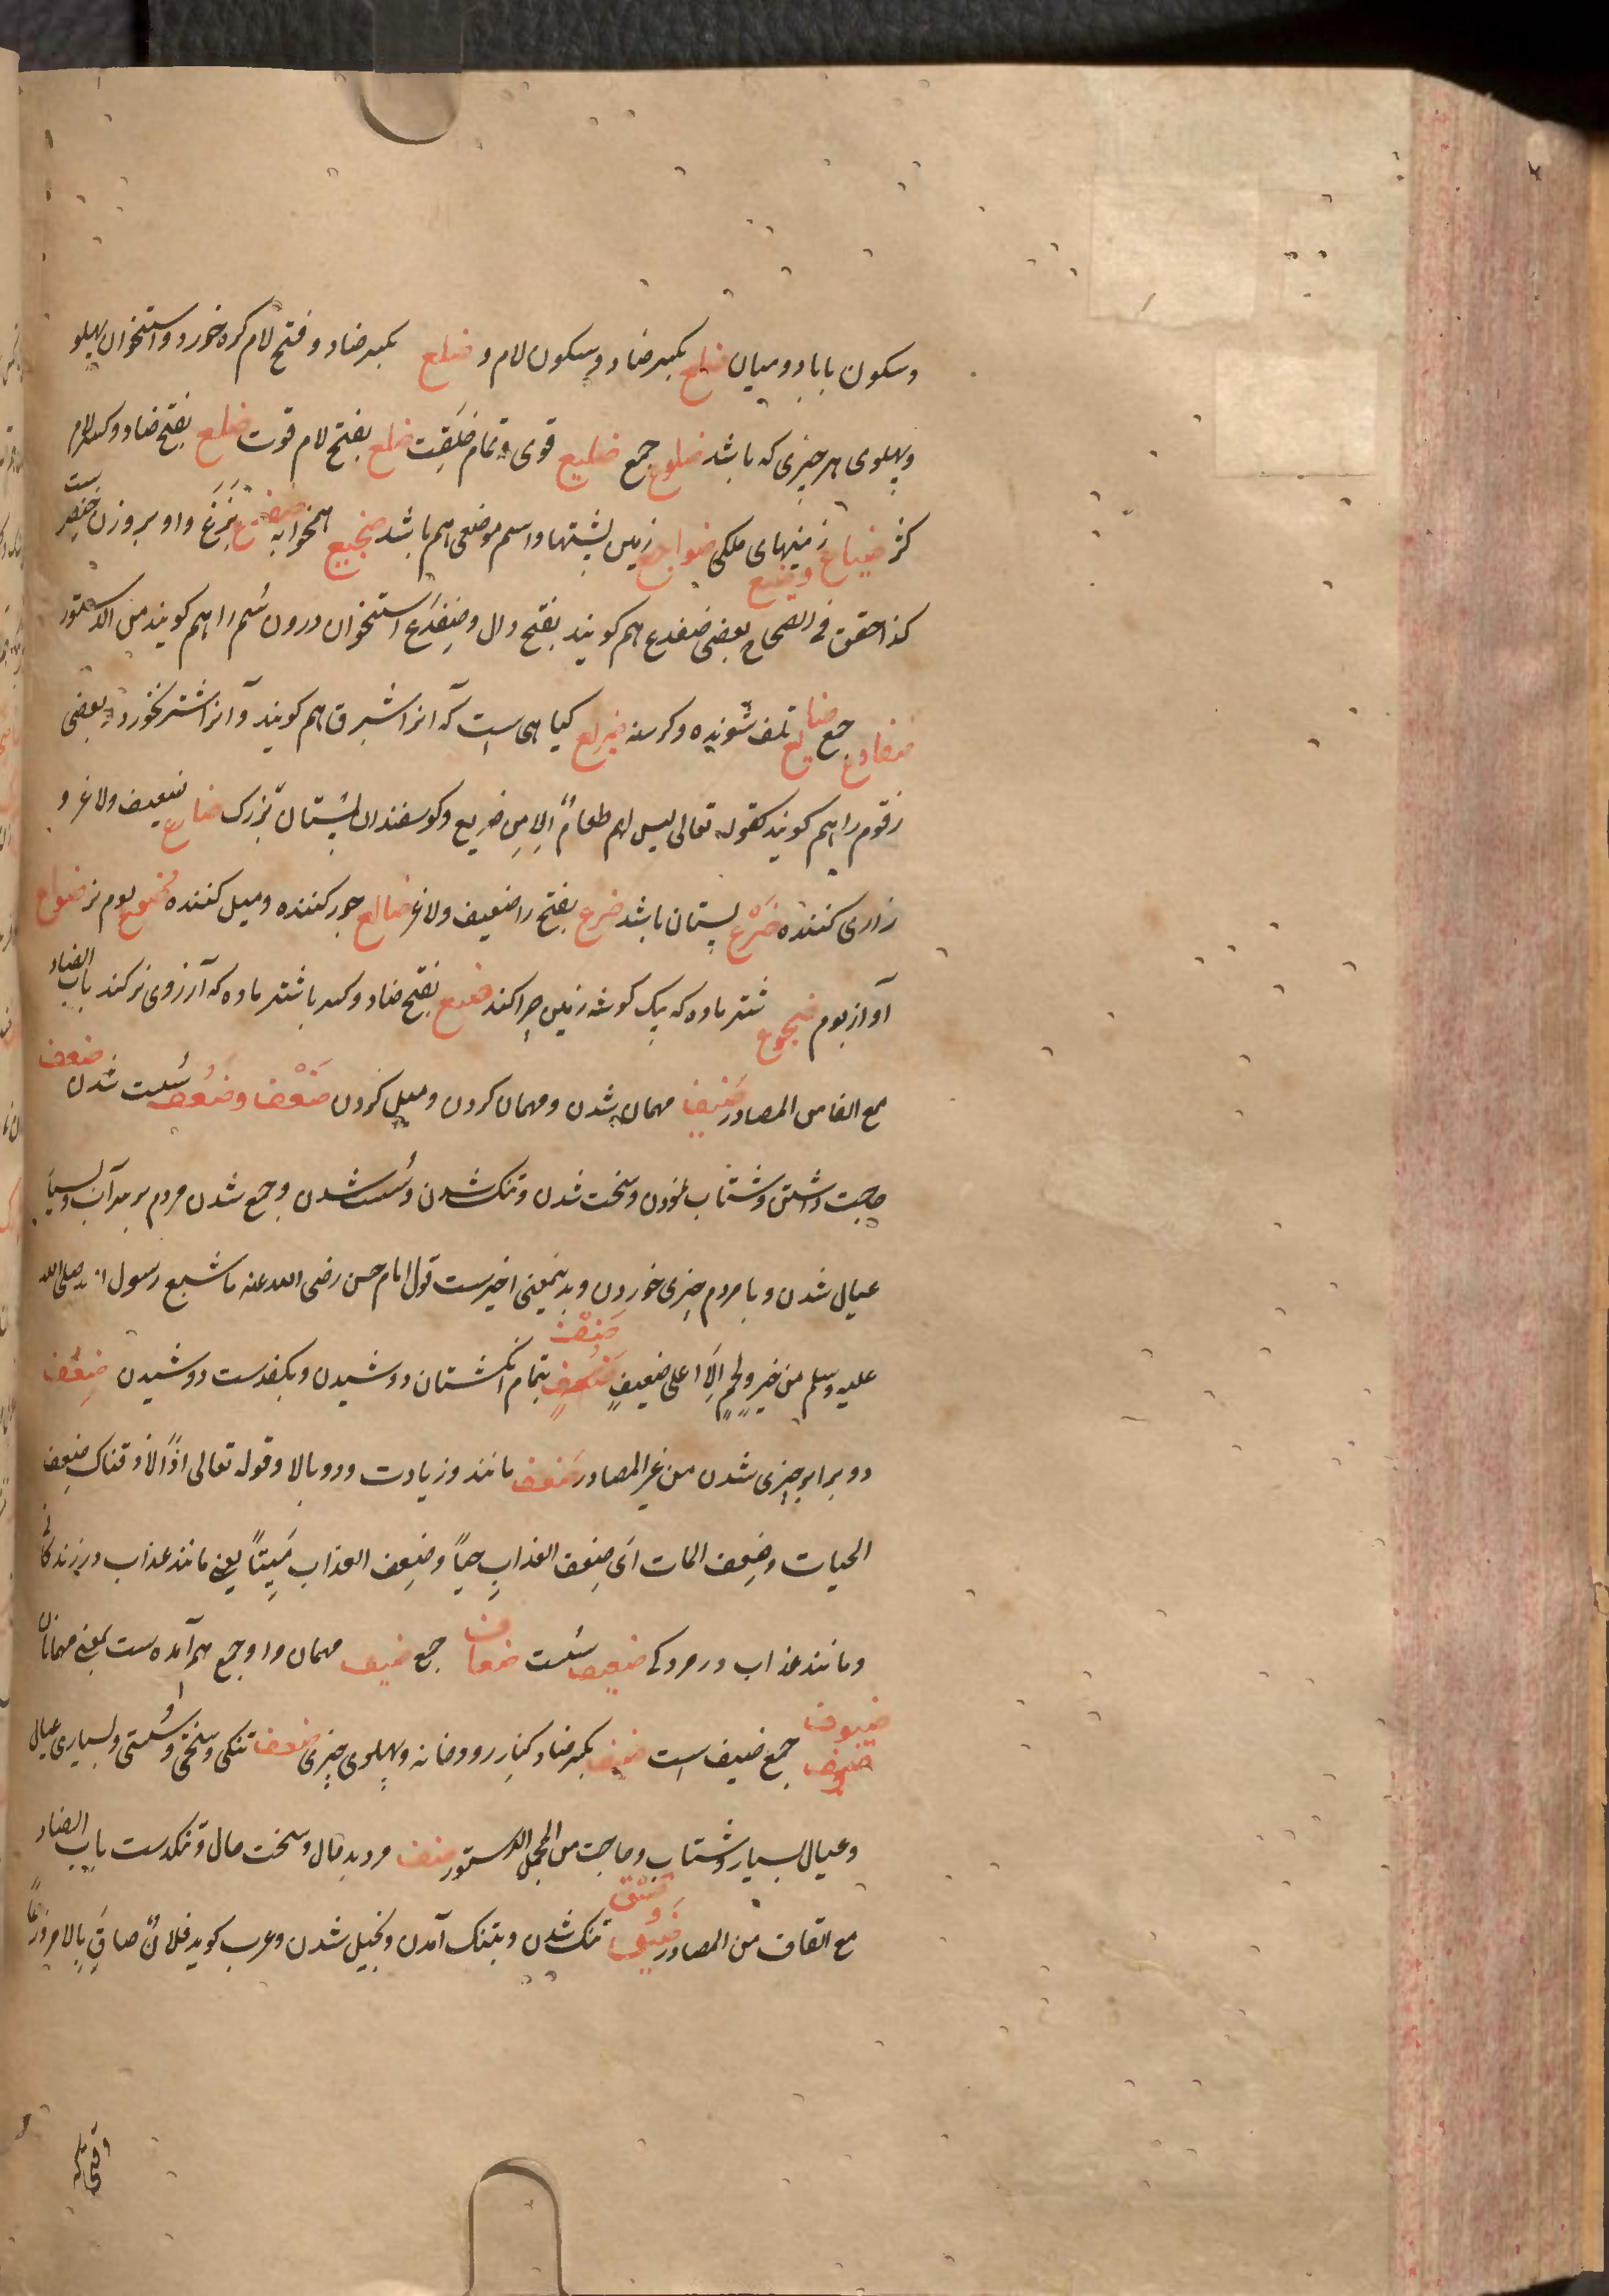 وسکون با بازو و میان ضلع بکسر ضاد و سکون لام و ضلع بکسر ضاد و فتح لام کره خورد و استخوان پهلو
و پهلوی هر چیزی که باشد ضلوع جمع ضلیع قوی و تمام خلقت ضلع بفتح لام قوت ضلع بفتح ضاد و کسر لام
کژ ضیاع و ضیع زمینهای ملکی ضواجع زمین پشتها و اسم موضعی هم باشد ضجیع همخوابه ضفدع بَزَغ و او بر وزن خنصر ست
کذا حقق فی الصحاح بعضی ضفدع هم کویند بفتح دال و ضِفدَع استخوان درون سُم را هم کویند من الدستور
ضفادع جمع ضایع تلف شونده و کرسنه ضریع کیاهی است که آنرا شبرق هم کویند و آنرا شتر نخورد و بعضی
زقوم را هم کویند کقوله تعالی لیس لهم طعامٌ اِلا مِن ضریع و کوسفندان پستان بزرک ضارع ضعیف و لاغر و
زاری کننده ضَرْع پستان باشد ضرع بفتح را ضعیف و لاغر ضالع جور کننده و میل کننده ضُوَع بوم نر ضواع
آواز بوم ضجوع شتر ماده که بیک کوشه زمین چرا کند ضبع بفتح ضاد و کسر با شتر ماده که آرزوی نر کند باب الضاد
مع الفا من المصادر ضَیف مهمان شدن و مهمان کردن و میل کردن ضَعْف و ضُعف سُست شدن ضفف
حاجت داشتن و شتاب نمودن و سخت شدن و تنک شدن و سُست شدن و جمع شدن مردم بر سر آب و بسیار
عیال شدن و با مردم چیزی خوردن و بدینمعنی اخیرست قول امام حسن رضی الله عنه ما شبع رسول الله صلی الله
علیه وسلم من خبزٍ ولحمٍ اِلّا علی ضففٍ ضَفْف بتمام انکشتان دوشیدن و بکفدست دوشیدن ضِعْف
دو برابر چیزی شدن من غیر المصادر ضعف مانند و زیادت و دو بالا و قوله تعالی اذًا لاذقناک ضِعف
الحیات وضِعف الممات اَی ضِعف العذابِ حیاً وضِعف العذاب مَیتاً یعنی مانند عذاب در زندکانی
و مانند عذاب در مردکی ضعیف سُست ضعاف جمع ضیف مهمان و او جمع هم آمده ست بمعنی مهمانان
ضیوف جمع ضیف است ضیف بکسر ضاد کنار رودخانه و پهلوی چیزی ضفف تنکی و سختی و سُستی و بسیاری عیال
و عیال بسیار و شتاب و حاجت من المجمل الدستور ضفف مرد بد حال و سخت حال و تنکدست باب الضاد
مع القاف من المصادر ضَیق و ضیْق تنک شدن و بتنک آمدن و بخیل شدن و عرب کوید فلانٌ ضاقَ بالامر ذرعاً